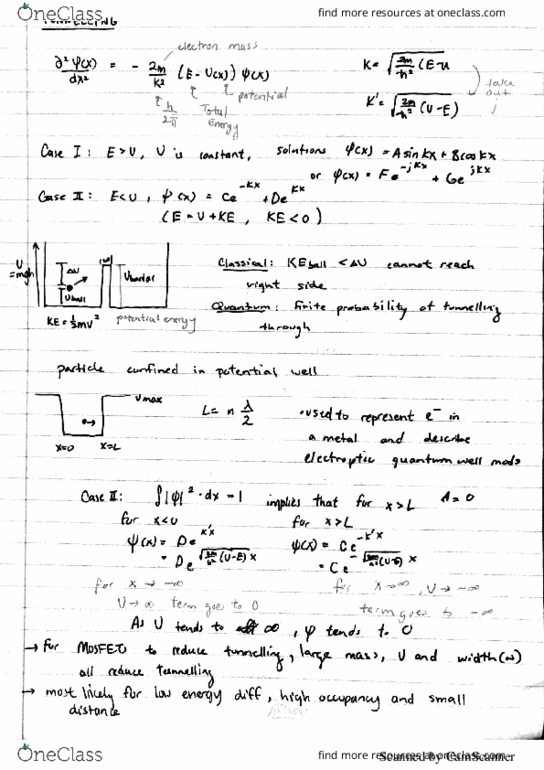 OneClass
find more resources at oneclass.com
TUNNELLING
electron mass
∂²Ψ(x)/dx² = - 2m/ħ² (E - U(x)) Ψ(x)
K = √(2m/ħ² (E-U
K' = √(2m/ħ² (U-E))
take out j
h/2π
Total Energy
potential
Case I: E>U, U is constant, solutions Ψ(x) = A sin kx + B cos kx
or Ψ(x) = Fe^-jKx + Ge^jKx
Case II: E<U, Ψ(x) = Ce^-kx + De^kx
(E = U + KE, KE<0)
U = mgh
ΔU
Uball
Ubarrier
KE = ½mv²
potential energy
Classical: KEball < ΔU cannot reach
right side
Quantum: finite probability of tunnelling
through
particle confined in potential well
Umax
x=0
x=L
L = n λ/2
• used to represent e⁻ in
a metal and describe
electroptic quantum well mods
Case II: ∫|Ψ|²·dx = 1 implies that for x>L A=0
for x<0
for x>L
Ψ(x) = De^K'x
Ψ(x) = Ce^-K'x
= De^√(2m/ħ²(U-E)) x
= Ce^-√(2m/ħ²(U-E)) x
for x → -∞
for x → ∞, U → -∞
U → ∞ term goes to 0
term goes to -∞
As U tends to ∞, Ψ tends to 0
→ for MOSFETs to reduce tunnelling, large mass, U and width(w)
all reduce tunnelling
→ most likely for low energy diff, high occupancy and small
distance
OneClass
find more resources at oneclass.com
Scanned by CamScanner